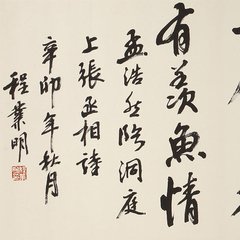 有羡魚情
孟浩然臨洞庭
上張丞相詩
辛卯年秋月
程業明